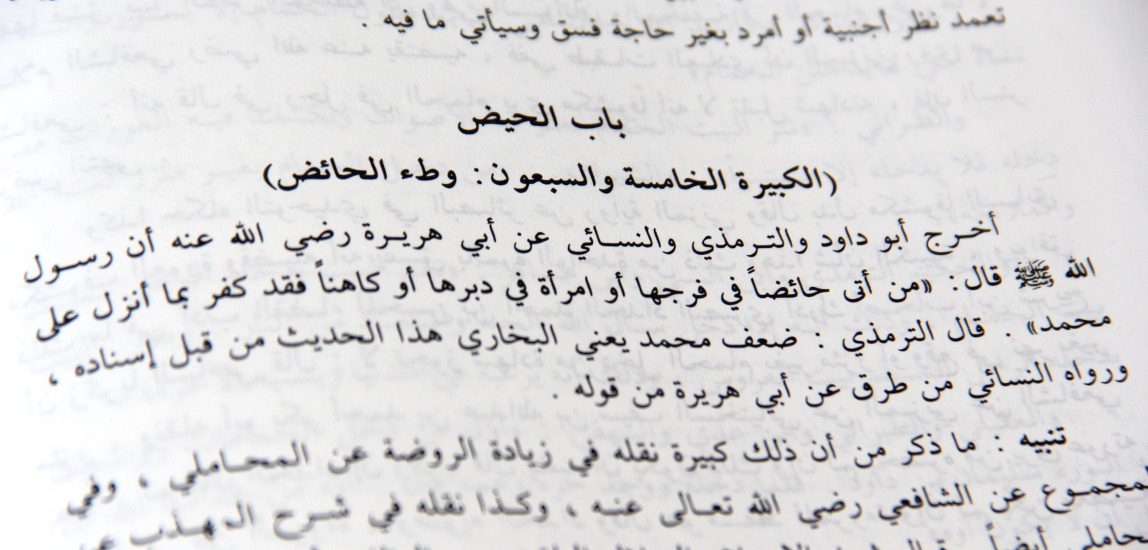 تعمد نظر أجنبية أو أمرد بغير حاجة فسق وسيأتي ما فيه .
باب الحيض
(الكبيرة الخامسة والسبعون : وطء الحائض)
أخرج أبو داود والترمذي والنسائي عن أبي هريرة رضي الله عنه أن رسول
الله ﷺ قال : «من أتى حائضاً في فرجها أو امرأة في دبرها أو كاهناً فقد كفر بما أنزل على
محمد» . قال الترمذي : ضعف محمد يعني البخاري هذا الحديث من قبل إسناده ،
ورواه النسائي من طرق عن أبي هريرة من قوله .
تنبيه : ما ذكر من أن ذلك كبيرة نقله في زيادة الروضة عن المحاملي ، وفي
المجموع عن الشافعي رضي الله تعالى عنه ، وكذا نقله في شرح المهذب عن